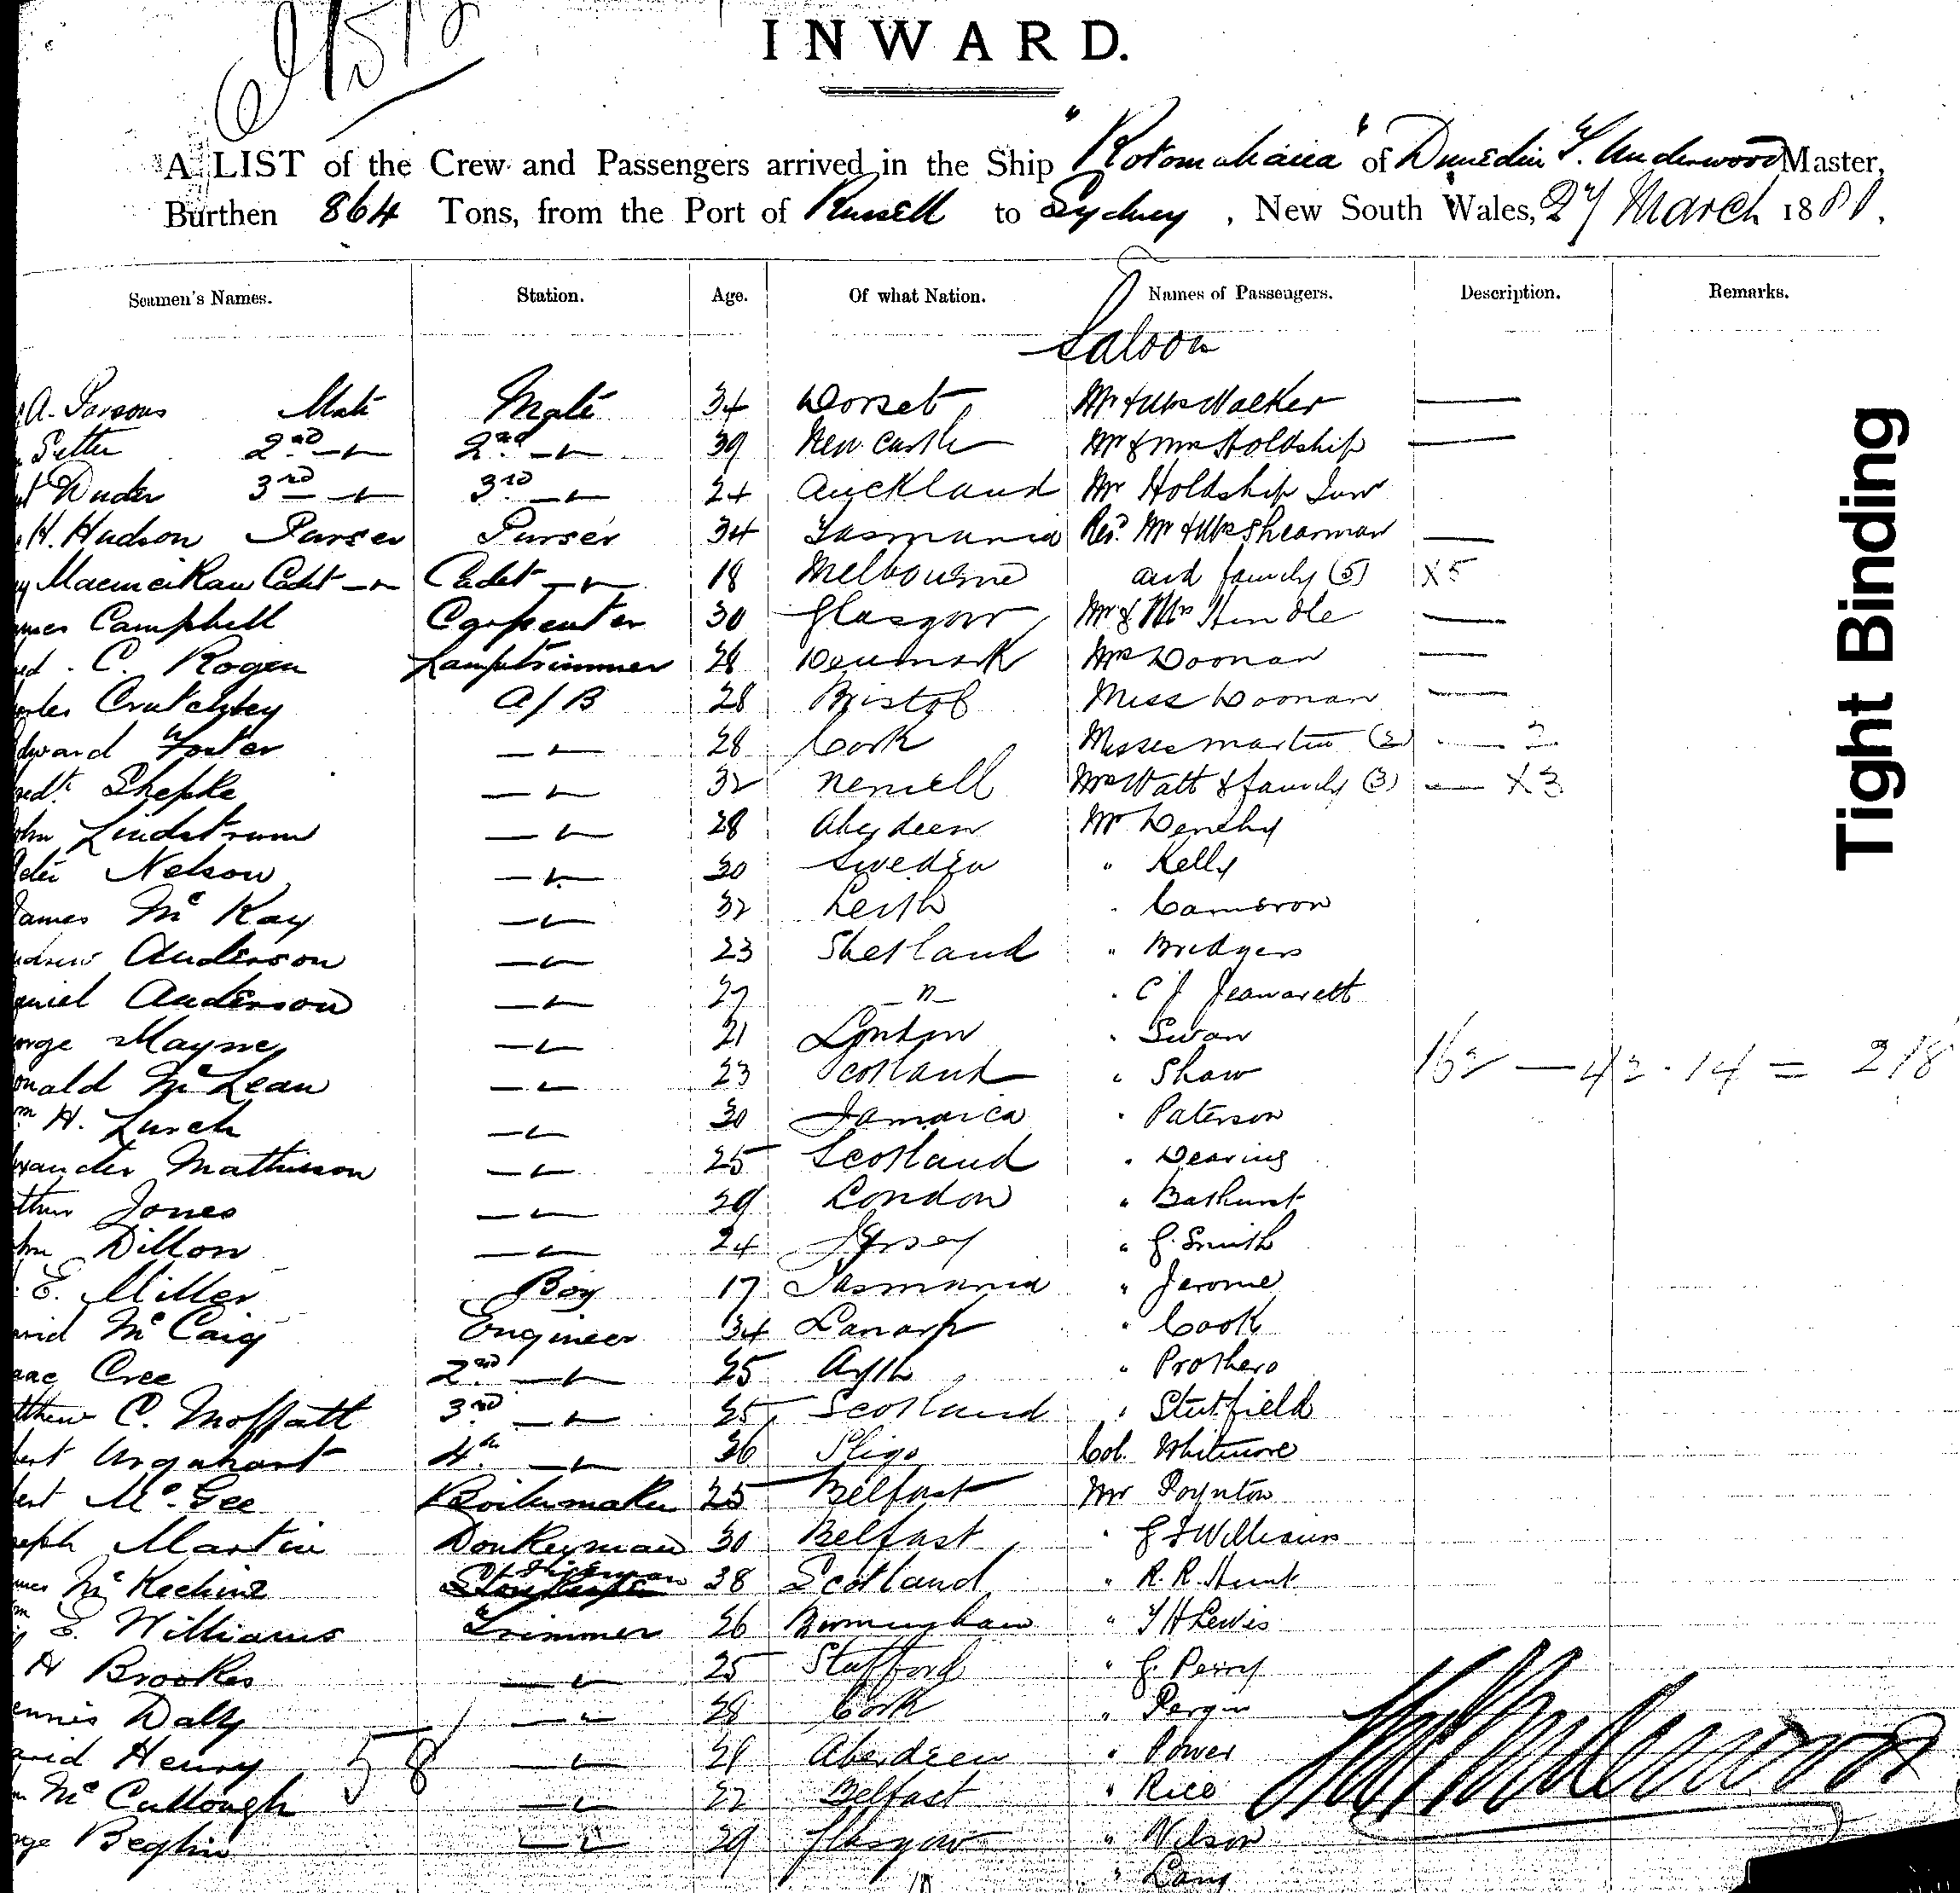 INWARD.
A LIST of the Crew and Passengers arrived in the Ship "Rotomahana" of Dunedin T. Underwood Master,
Burthen 864 Tons, from the Port of Russell to Sydney, New South Wales, 27 March 188
Seamen's Names. Station. Age. Of what Nation. Names of Passengers. Description. Remarks.
Saloon
A. Parsons Mate Mate 34 Dorset Mr & Mrs Walker —
2nd 2nd 39 New Castle Mr & Mrs Holdship —
3rd 3rd 24 Auckland Mr Holdship Junr
H. Hudson Purser Purser 34 Tasmania Revd. Mr & Mrs Shearman —
Cadet Cadet 18 Melbourne and family (5) X5
Campbell Carpenter 30 Glasgow Mr & Mrs Hindle —
C. Rogen Lamptrimmer 28 Denmark Mrs Doonan —
Crutchley A/B 28 Bristol Miss Doonan —
Foster 28 Cork Misses Martin (2) — 2
Shepke 32 Mrs Watt & family (3) — X3
Lindstrum 28 Aberdeen Mr Denehy
Nelson 30 Sweden " Kelly
James McKay 32 Leith " Cameron
Anderson 23 Shetland " Bridgers
Anderson 27 — n — " C J Jeanvarett
Mayne 21 London " Swan
McLean 23 Scotland " Shaw 162 — 42 . 14 = 218
H. Lynch 30 Jamaica " Paterson
Mathieson 25 Scotland " Dearing
Jones 29 London " Bathurst
Dillon 24 Jersey " G. Smith
E. Miller Boy 17 Tasmania " Jerome
McCaig Engineer 34 Lanark " Cook
Cree 2nd 25 " Prothero
C. Moffatt 3rd 25 Scotland " Stutfield
Urquhart 4th 36 Sligo Col. Whitmore
McGee Boilermaker 25 Belfast Mr Poynton
Martin Donkeyman 30 Belfast " G F Williams
McKechine Fireman 38 Scotland " R. R. Hunt
E. Williams Trimmer 26 Birmingham " T H Lewis
H Brookes 25 Stafford " G. Perry
Daly 28 Cork "
Henry 58 29 Aberdeen " Power
McCullough 22 Belfast " Rice
Beglin 29 Glasgow " Wilson
" Lang
Tight Binding